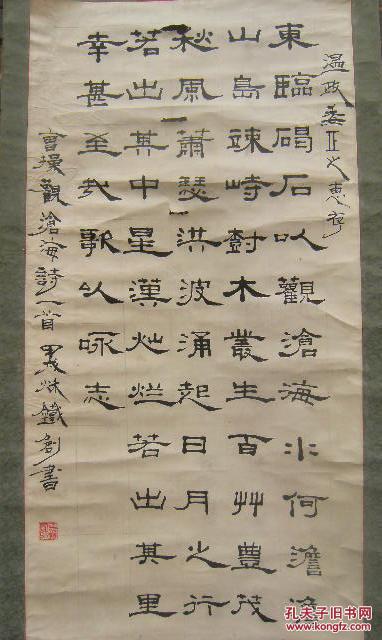 温政委正之惠存
東臨碣石以觀滄海水何澹澹
山島竦峙樹木叢生百艸豐茂
秋風蕭瑟洪波涌起日月之行
若出其中星漢灿烂若出其里
幸甚至哉歌以咏志
曹操觀滄海詩一首 鐵劍書
孔夫子旧书网